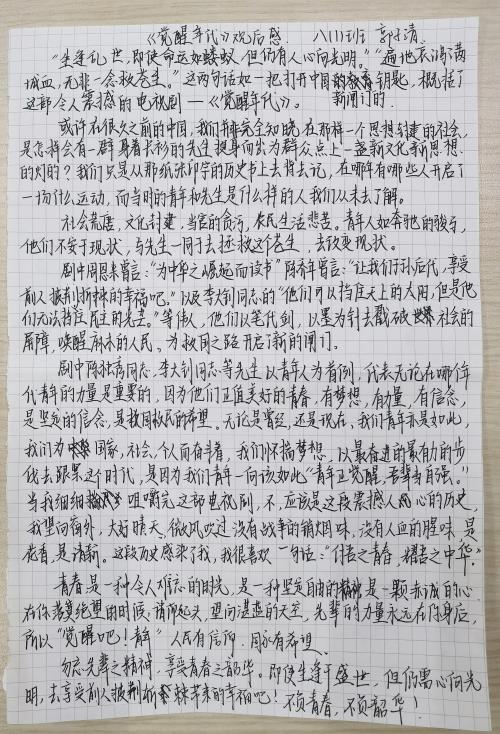 《觉醒年代》观后感. 八(1)班
“生逢乱世,即使命运如蝼蚁,但仍有人心向光明。”“遍地哀鸿满
城血,无非一念救苍生。”这两句话如一把打开中国的钥匙,概括了
新闸门的
这部令人震撼的电视剧—《觉醒年代》。
或许在很久之前的中国,我们并非完全知晓,在那样一个思想封建的社会,
是怎样会有一群身着长衫的先生挺身而出为群众点上一盏新文化新思想
的灯的?我们只是从那纸张印字的历史书上去背去记,在哪年有哪些人开启了
一场什么运动,而当时的青年和先生是什么样的人我们从未去了解。
社会荒唐,文化封建,当官的贪污,农民生活悲苦。青年人如奔驰的骏马,
他们不安于现状,与先生一同去拯救这个苍生,去改变现状。
剧中周恩来曾言:“为中华之崛起而读书”陈乔年曾言:“让我们子孙后代,享受
前人披荆斩棘的幸福吧。”以及李大钊同志的“他们可以挡住天上的太阳,但是他
们无法挡住民主的光芒。”等伟人,他们以笔代剑,以墨为针去戳破社会的
屏障,唤醒麻木的人民、为救国之路开启了新的闸门。
剧中陈独秀同志、李大钊同志等先生以青年人为首例,代表无论在哪个年
代青年的力量是重要的,因为他们正值美好的青春,有梦想,有力量,有信念,
是坚定的信念,是救国救民的希望。无论是曾经,还是现在,我们青年亦是如此,
我们为国家,社会,个人而奋斗着,我们怀揣梦想,以最奋进的最有力的步
伐去跟紧这个时代,是因为我们青年一向该如此“青年正觉醒,吾辈当自强。”
当我细细咀嚼完这部电视剧,不,应该是这段震撼人心的历史,
我望向窗外,大好晴天,微风吹过没有战争的硝烟味,没有人血的腥味,是
花香,是清新。这段历史感染了我,我很喜欢一句话:“付吾之青春,耀吾之中华。”
青春是一种令人难忘的时光,是一种坚定自由的精神是一颗赤诚的心
在你落寞绝望的时候、请你起头,望向湛蓝的天空,先辈的力量永远在你身后,
所以“觉醒吧!青年”人民有信仰,国家有希望、
勿忘先辈之精神,享受青春之韶华。即使生逢于盛世,但仍需心向光
明,去享受前人披荆斩棘带来的幸福吧!不负青春,不负韶华!